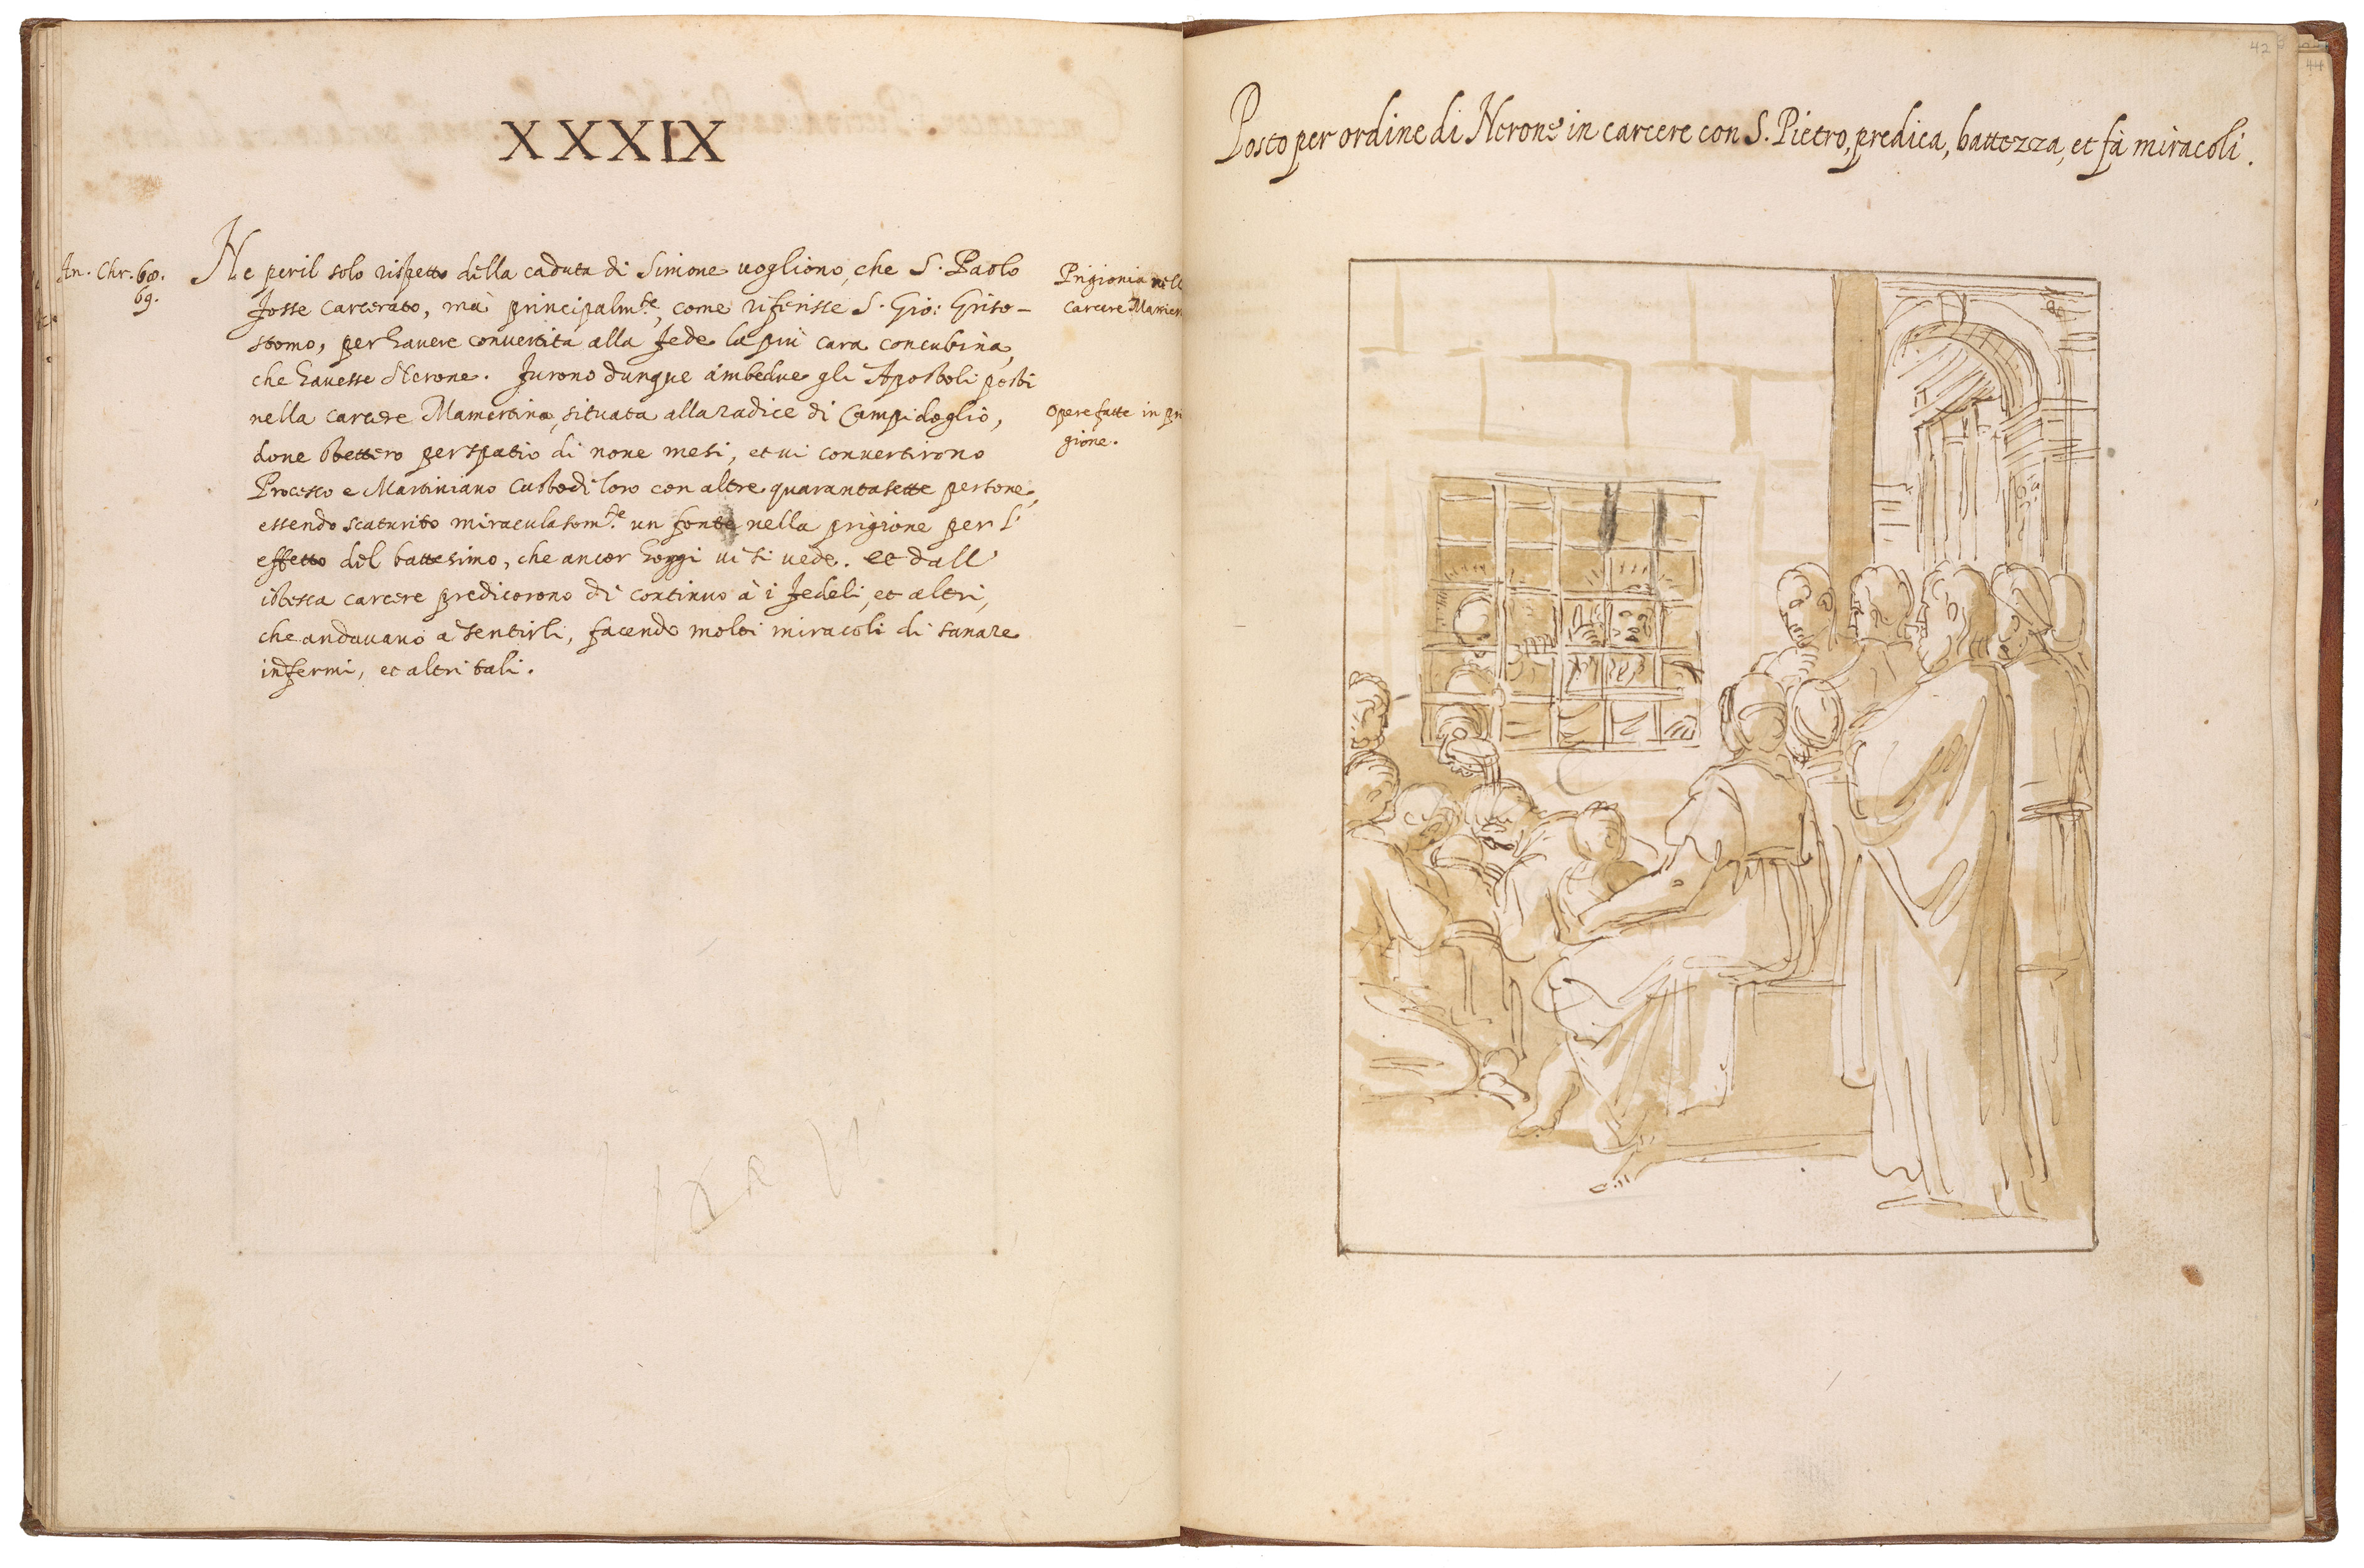 XXXIX
An. Chr. 68.
69.
Ne per il solo rispetto della caduta di Simone uogliono, che S. Paolo
fosse carcerato, mà principalm.te, come riferisse S. Gio: Griso-
stomo, per hauere conuertita alla fede la più cara concubina,
che hauesse Nerone. Furono dunque ambedue gli Apostoli posti
nella carcere Mamertina, situata alla radice di Campidoglio,
doue stettero per spatio di noue mesi, et ui conuertirono
Processo e Martiniano Custodi loro con altre quarantasette persone,
essendo scaturito miraculosam.te un fonte nella prigione per l'
effetto del battesimo, che ancor hoggi ui si uede. et dall'
istessa carcere predicorono di continuo à i fedeli, et altri,
che andauano a sentirli, facendo molti miracoli di sanare
infermi, et altri tali.
Prigionia nell
carcere Mamer
Opere fatte in pri
gione.
42
44
Posto per ordine di Nerone in carcere con S. Pietro, predica, battezza, et fà miracoli.